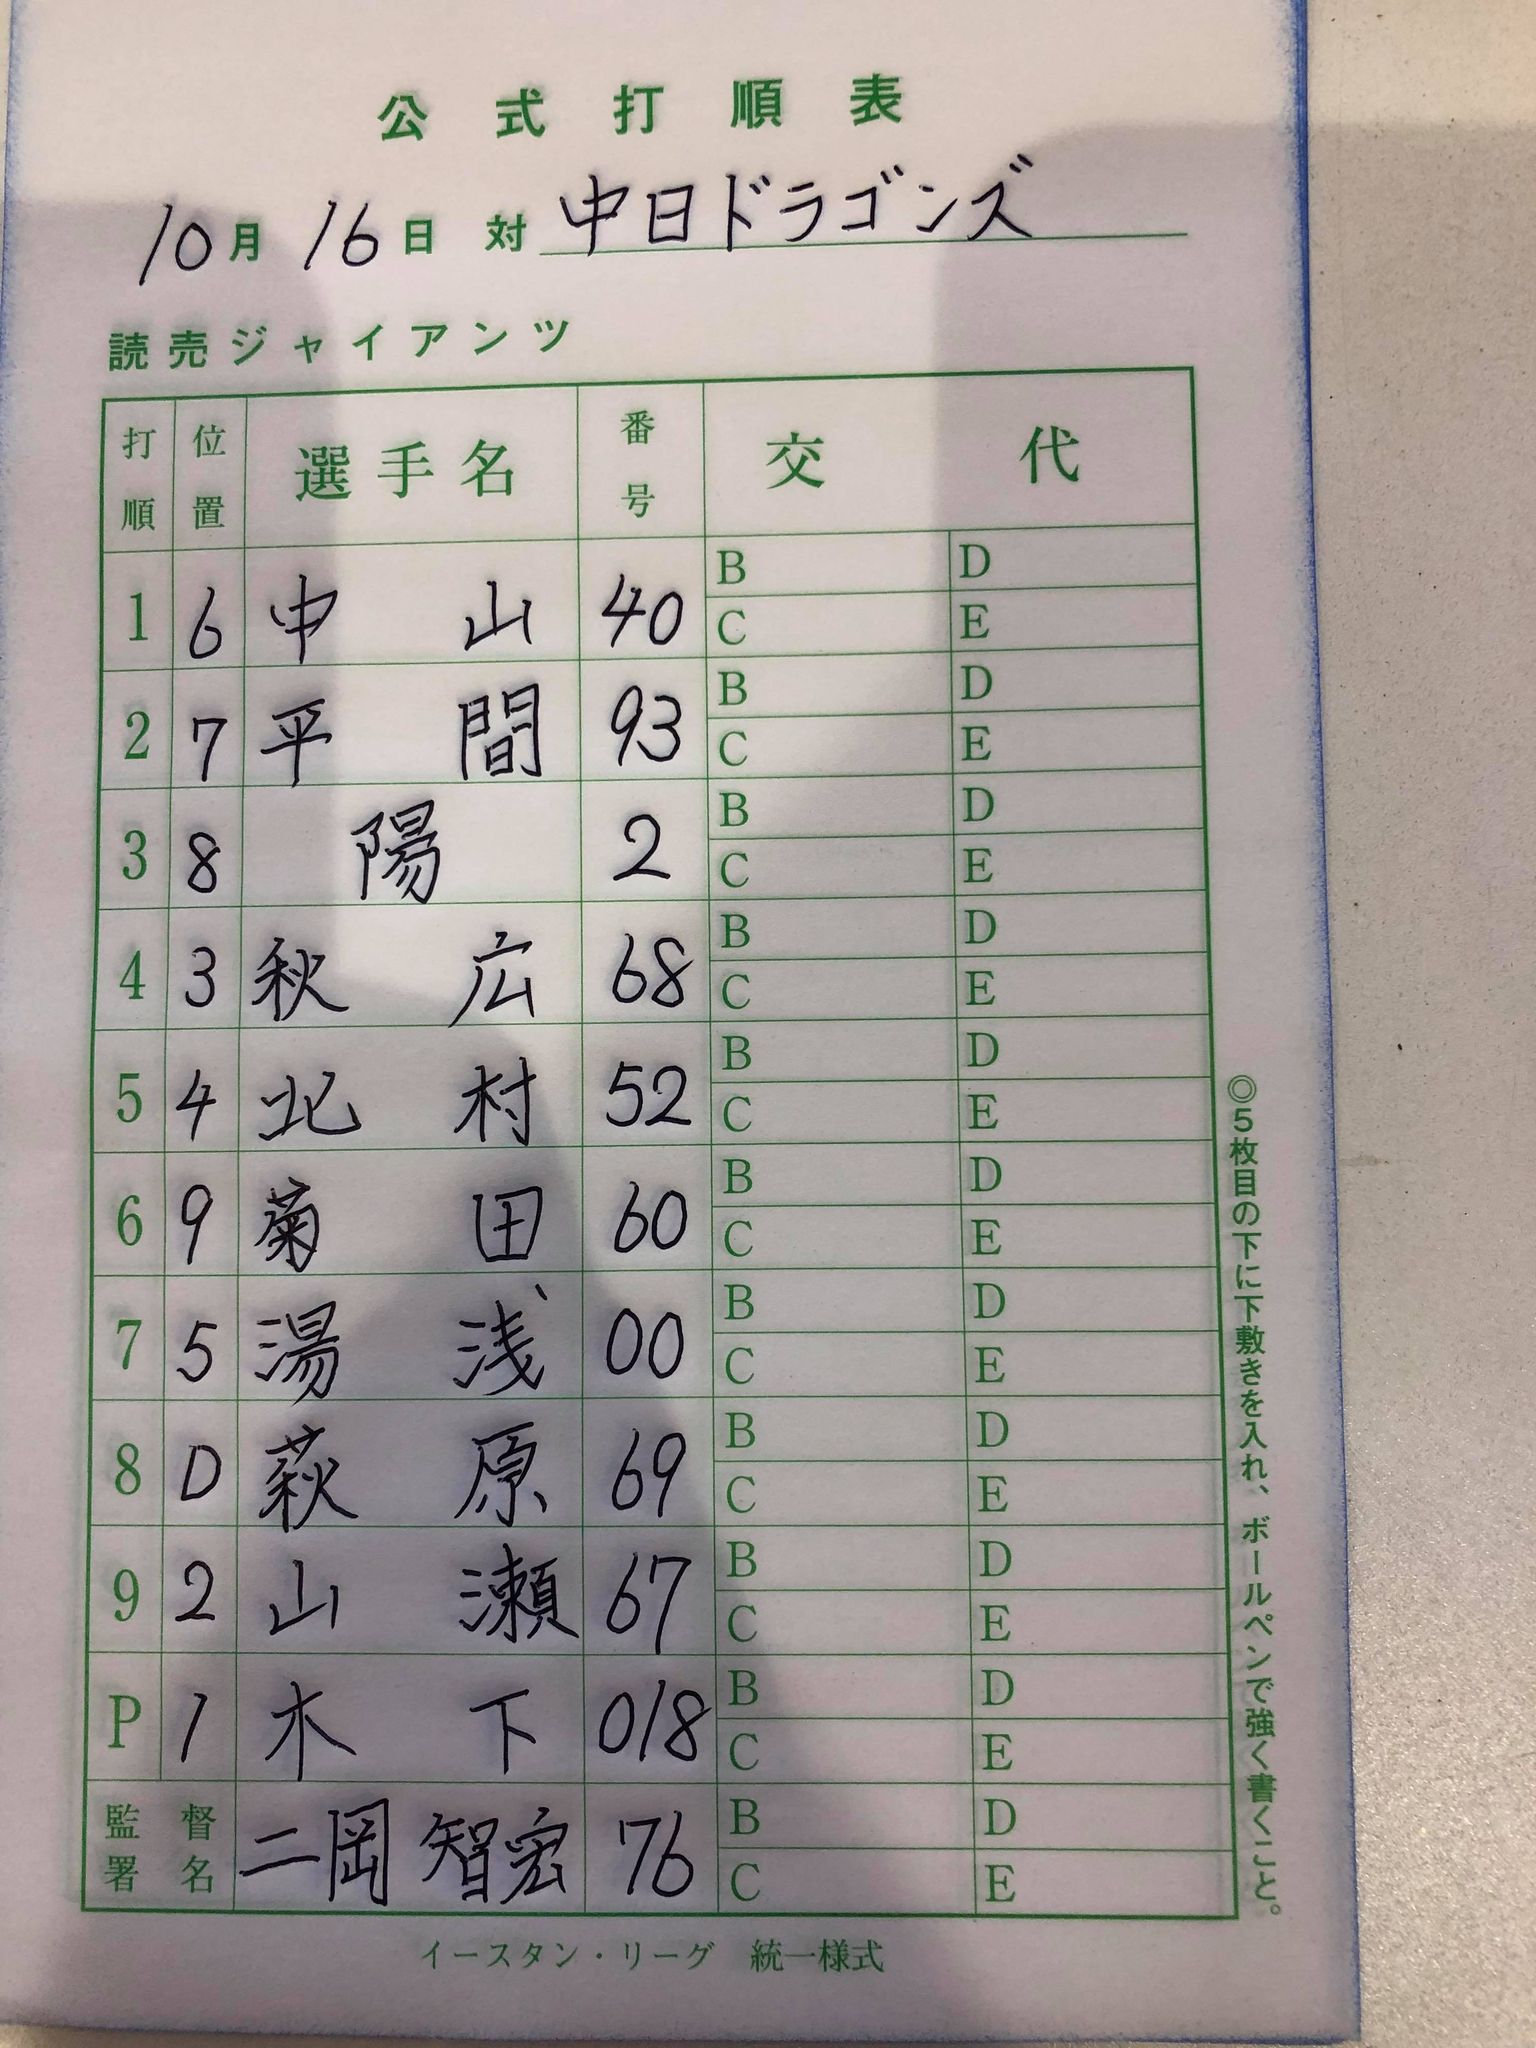 公式打順表
10月 16日 対 中日ドラゴンズ
読売ジャイアンツ
打順 位置 選手名 番号 交代
1 6 中山 40 B D
C E
2 7 平間 93 B D
C E
3 8 陽 2 B D
C E
4 3 秋広 68 B D
C E
5 4 北村 52 B D
C E
6 9 菊田 60 B D
C E
7 5 湯浅 00 B D
C E
8 D 萩原 69 B D
C E
9 2 山瀬 67 B D
C E
P 1 木下 018 B D
C E
監督署名 二岡智宏 76 B D
C E
イースタン・リーグ 統一様式
◎5枚目の下に下敷きを入れ、ボールペンで強く書くこと。